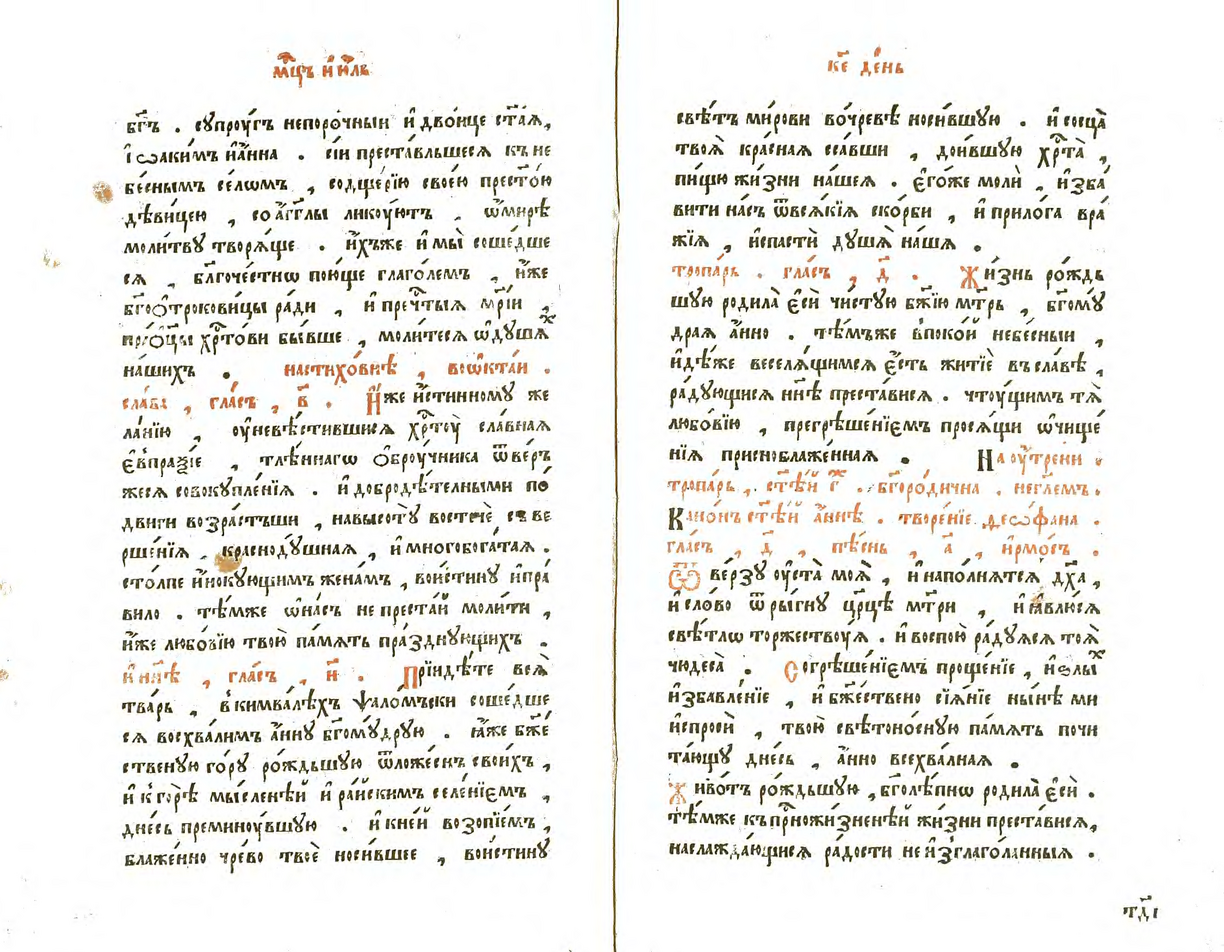 мⷭ҇цъ и҆ю́ль
бг҃ъ . сꙋпрꙋ́гъ непоро́чныи и҆ дво́ице ст҃а́ѧ,
і҆ѡакимъ и҆ а҆́нна . сїи преста́вльшесѧ къ не
бе́снымъ се́лѡмъ , со дще́рїю свое́ю престо́ю
дѣ́вицею , со а҆́гг҃лы ликꙋ́ютъ , ѡ҆ мирѣ
моли́твꙋ творѧ́ще . и҆́хъже и҆ мы̀ соше́дше
сѧ , бл҃гоче́стнѡ пою́ще глаго́лемъ , и҆́же
бг҃оѻтрокови́цы ра́ди , и҆ преч҇тыѧ мр҃і́и ,
пра́ѻц҃ы хрⷭ҇то́ви бы́вше , моли́тесѧ ѡ҆ дꙋша́хъ
на́шихъ . на стихо́внѣ , во ѡ҆кта́и .
сла́ва , гла́съ , в҃ . И҆́же и҆́стинномꙋ же
ла́нїю , ᲂу҆невѣ́стившисѧ хрⷭ҇тꙋ̀ сла́внаѧ
є҆ѵпра́ѯїе , тлѣ́ннагѡ ѻ҆брꙋ́чника ѿве́рг
жесѧ совокꙋпле́нїѧ . и҆ добродѣ́телными по
двиги возра́стъши , на высотꙋ̀ востечѐ съве
рше́нїѧ . краснодꙋ́шнаѧ , и҆ многобога́таѧ .
сто́лпе и҆́нокꙋющимъ жена́мъ , вои́стинꙋ и҆ пра́
вило . тѣ́мже ѡ҆ на́съ не преста́й моли́ти ,
и҆́же любо́вїю твою̀ па́мѧть пра́зднꙋющихъ .
и҆ нн҃ѣ , гла́съ , и҃ . Прїидѣ́те всѧ̀
тва́рь , в кимва́лѣхъ ѱало́мъски соше́дше
сѧ восхва́лимъ а҆́ннꙋ бг҃омꙋ́дрꙋю . ꙗ҆́же бж҃е
ственꙋю го́рꙋ ро́ждьшꙋю ѿ ложе́снъ свои́хъ ,
и҆ к горѣ̀ мы́сленѣй и҆ ра́йскимъ селе́нїємъ ,
дне́сь преминꙋ́вшꙋю . и҆ к не́й возопїе́мъ ,
блаже́нно чре́во твоѐ носи́вшее , вои́стинꙋ
к҃е де́нь
свѣ́тъ ми́рови во чре́вѣ носи́вшꙋю . и҆ сосца̀
твоѧ̀ кра́снаѧ сса́вши , дои́вшꙋю хрⷭ҇та̀ ,
пи́щꙋ жи́зни на́шеѧ . є҆го́же молѝ , и҆зба́
вити на́съ ѿ всѧ́кїѧ ско́рби , и҆ прило́га вра́
жїѧ , и҆ спастѝ дꙋ́шѧ на́шѧ .
тропа́рь . гла́съ , д҃ . Жи́знь ро́ждь
шꙋю родила̀ є҆сѝ чи́стꙋю бж҃їю мт҃рь , бг҃омꙋ́
драѧ а҆́нно . тѣ́мъже в поко́й небе́сныи ,
и҆дѣ́же веселѧ́щимсѧ є҆́сть житїѐ въ сла́вѣ ,
ра́дꙋющисѧ нн҃ѣ преста́висѧ . чтꙋ́щимъ тѧ̀
любо́вїю , прегрѣше́нїємъ просѧ́щи ѡ҆чище́
нїѧ присноблаже́ннаѧ . На ᲂу҆́трени .
тропа́рь , ст҃ѣй г҃ . бг҃оро́дична . не гл҃емъ .
Кано́нъ ст҃ѣй а҆́ннѣ . творе́нїе ѳеѡфана .
гла́съ , д҃ , пѣ́снь , а҃ , і҆рмо́съ .
Ѿве́рзꙋ ᲂу҆ста̀ моѧ̀ , и҆ напо́лнѧтсѧ дх҃а ,
и҆ сло́во ѿры́гнꙋ цр҃цѣ мт҃ри , и҆ ꙗ҆влю́сѧ
свѣ́тлѡ торжествꙋ́ѧ . и҆ воспою̀ ра́дꙋѧсѧ тоѧ̀
чюдеса̀ . Согрѣше́нїємъ проще́нїе , и҆ ѕлы́хъ
и҆збавле́нїе , и҆ бж҃е́ствено сїѧ́нїе ны́нѣ ми
и҆спросѝ , твою̀ свѣтоно́снꙋю па́мѧть почи
та́ющꙋ дне́сь , а҆́нно всехва́лнаѧ .
Живо́тъ ро́ждьшꙋю , бг҃олѣ́пнѡ родила̀ є҆сѝ .
тѣ́мже къ при́ножи́зненѣй жи́зни преста́висѧ,
наслажда́ющисѧ ра́дости неи҆зглаго́ланныѧ .
тд҃і